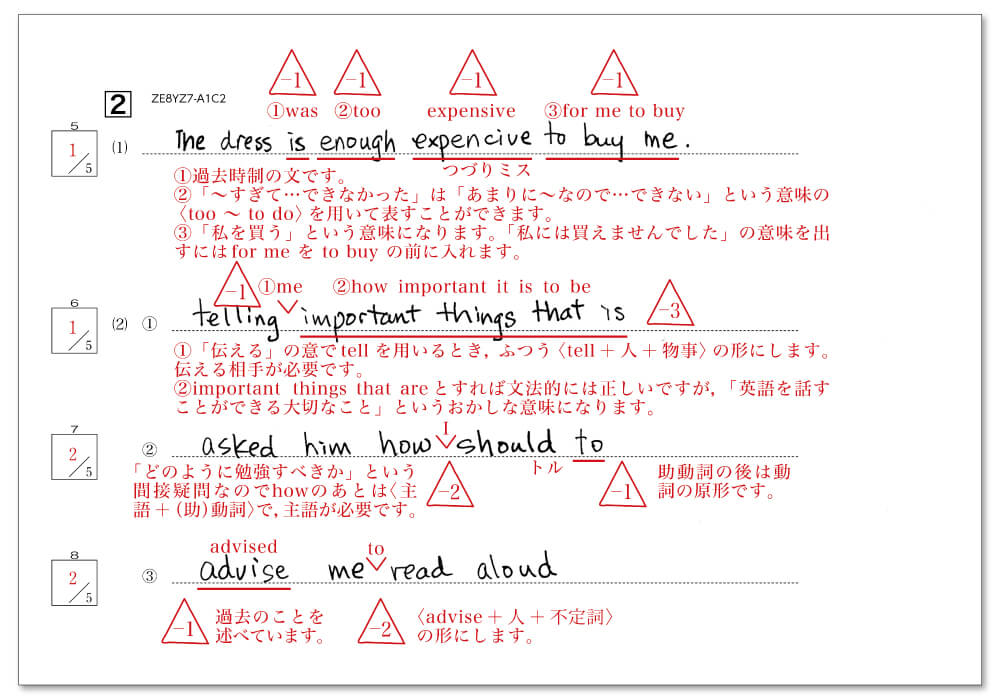 -1 -1 -1 -1
2 ZE8YZ7-A1C2 ①was ②too expensive ③for me to buy
5
1/5 (1) The dress is enough expencive to buy me.
つづりミス
①過去時制の文です。
②「〜すぎて…できなかった」は「あまりに〜なので…できない」という意味の
〈too 〜 to do〉を用いて表すことができます。
③「私を買う」という意味になります。「私には買えませんでした」の意味を出
すにはfor me を to buy の前に入れます。
6
-1 ①me ②how important it is to be
1/5 (2) ① telling important things that is -3
①「伝える」の意でtellを用いるとき,ふつう〈tell+人+物事〉の形にします。
伝える相手が必要です。
②important things that areとすれば文法的には正しいですが,「英語を話す
ことができる大切なこと」というおかしな意味になります。
7
I
2/5 ② asked him how should to
トル
「どのように勉強すべきか」という
間接疑問なのでhowのあとは〈主
語+(助)動詞〉で,主語が必要です。
-2
-1
助動詞の後は動
詞の原形です。
8
advised to
2/5 ③ advise me read aloud
-1
過去のことを
述べています。
-2
〈advise+人+不定詞〉
の形にします。